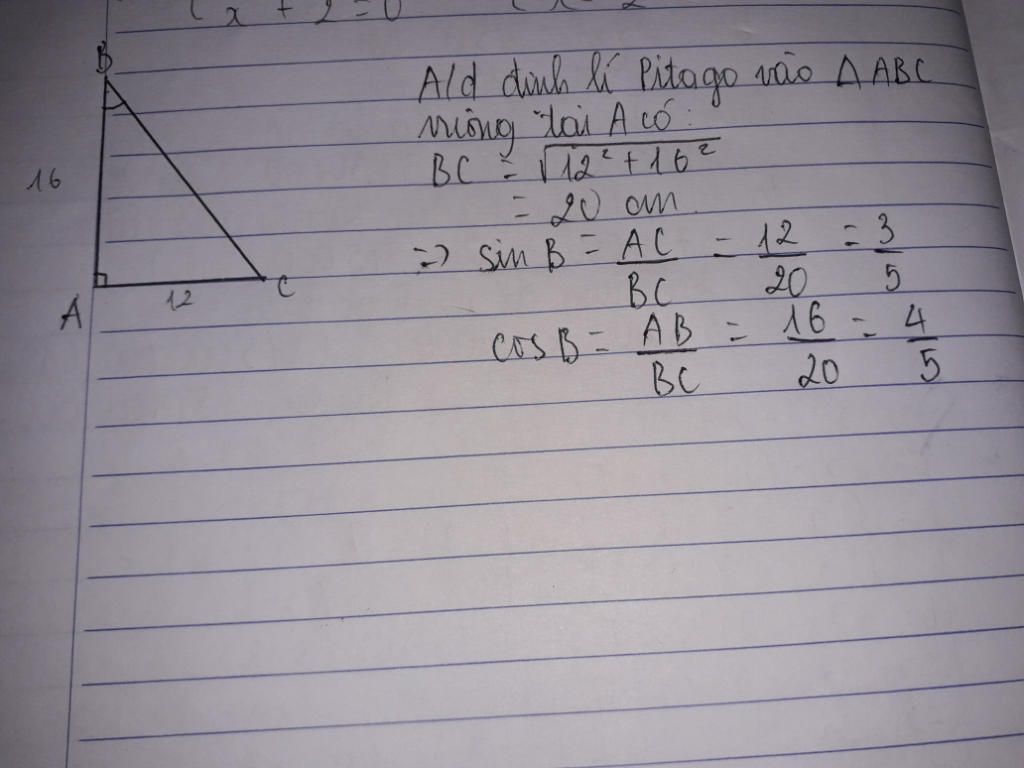 x + 2 = 0
B
16
A
12
C
A/d định lí Pitago vào △ ABC
vuông tại A có:
BC = √(12² + 16²)
= 20 cm
=> sin B = AC/BC = 12/20 = 3/5
cos B = AB/BC = 16/20 = 4/5